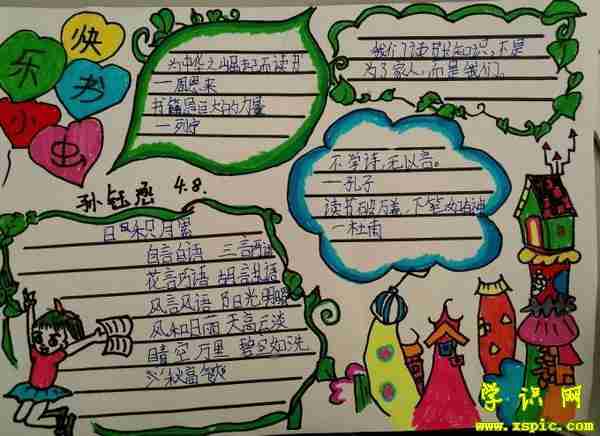 快
乐书
小虫
为中华之崛起而读书
一周恩来
书籍是巨大的力量
一列宁
我们读书长知识,不是
为了家人,而是我们。
不学诗,无以言。
一孔子
读书破万卷,下笔如有神
一杜甫
4.8.
自言自语 三言两语
花言巧语 胡言乱语
风言风语
风和日丽 天高云淡
晴空万里 碧空如洗
学识网
www.xspic.com